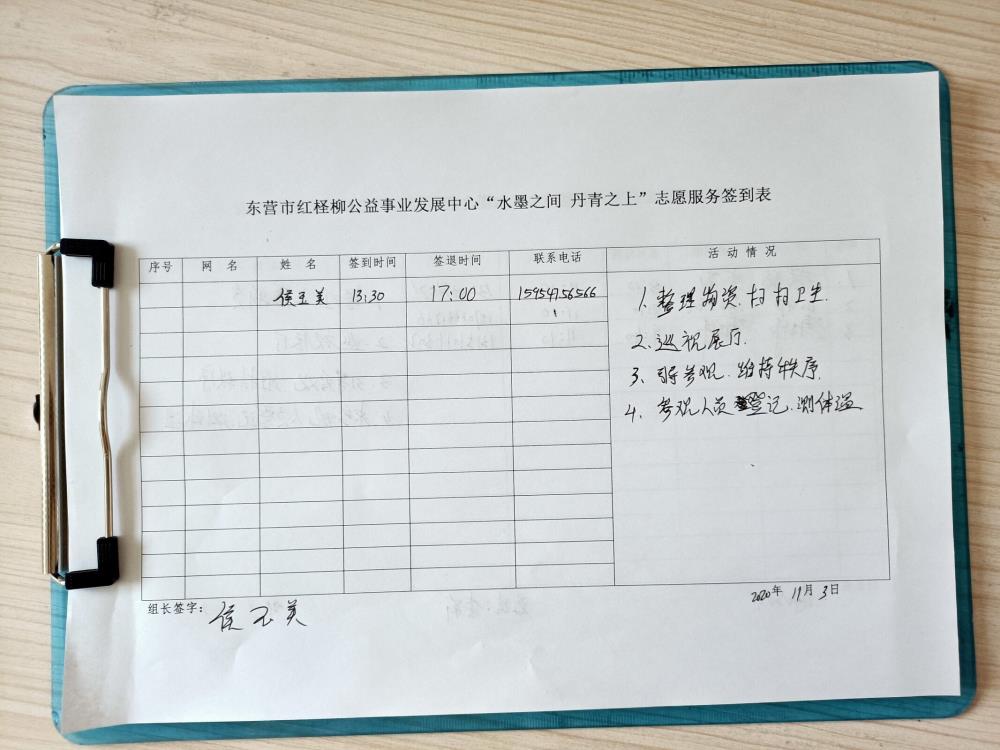 东营市红柽柳公益事业发展中心“水墨之间 丹青之上”志愿服务签到表
序号 网 名 姓 名 签到时间 签退时间 联系电话 活 动 情 况
侯玉美 13:30 17:00 15954756566
1、整理物资、打扫卫生.
2、巡视展厅.
3、引导参观、维持秩序
4、参观人员登记、测体温
组长签字：侯玉美
2020年 11月 3日